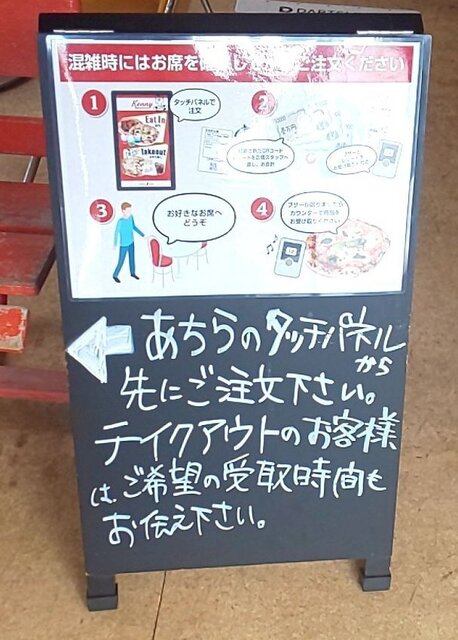 混雑時にはお席を
ご注文ください
1
タッチパネルで
注文
Kenny
Eat In
takeout
2
3
お好きなお席へ
どうぞ
4
ブザーが鳴りましたら
カウンターで商品を
お受け取りください
あちらのタッチパネルから
先にご注文下さい。
テイクアウトのお客様
は、ご希望の受取時間も
お伝え下さい。